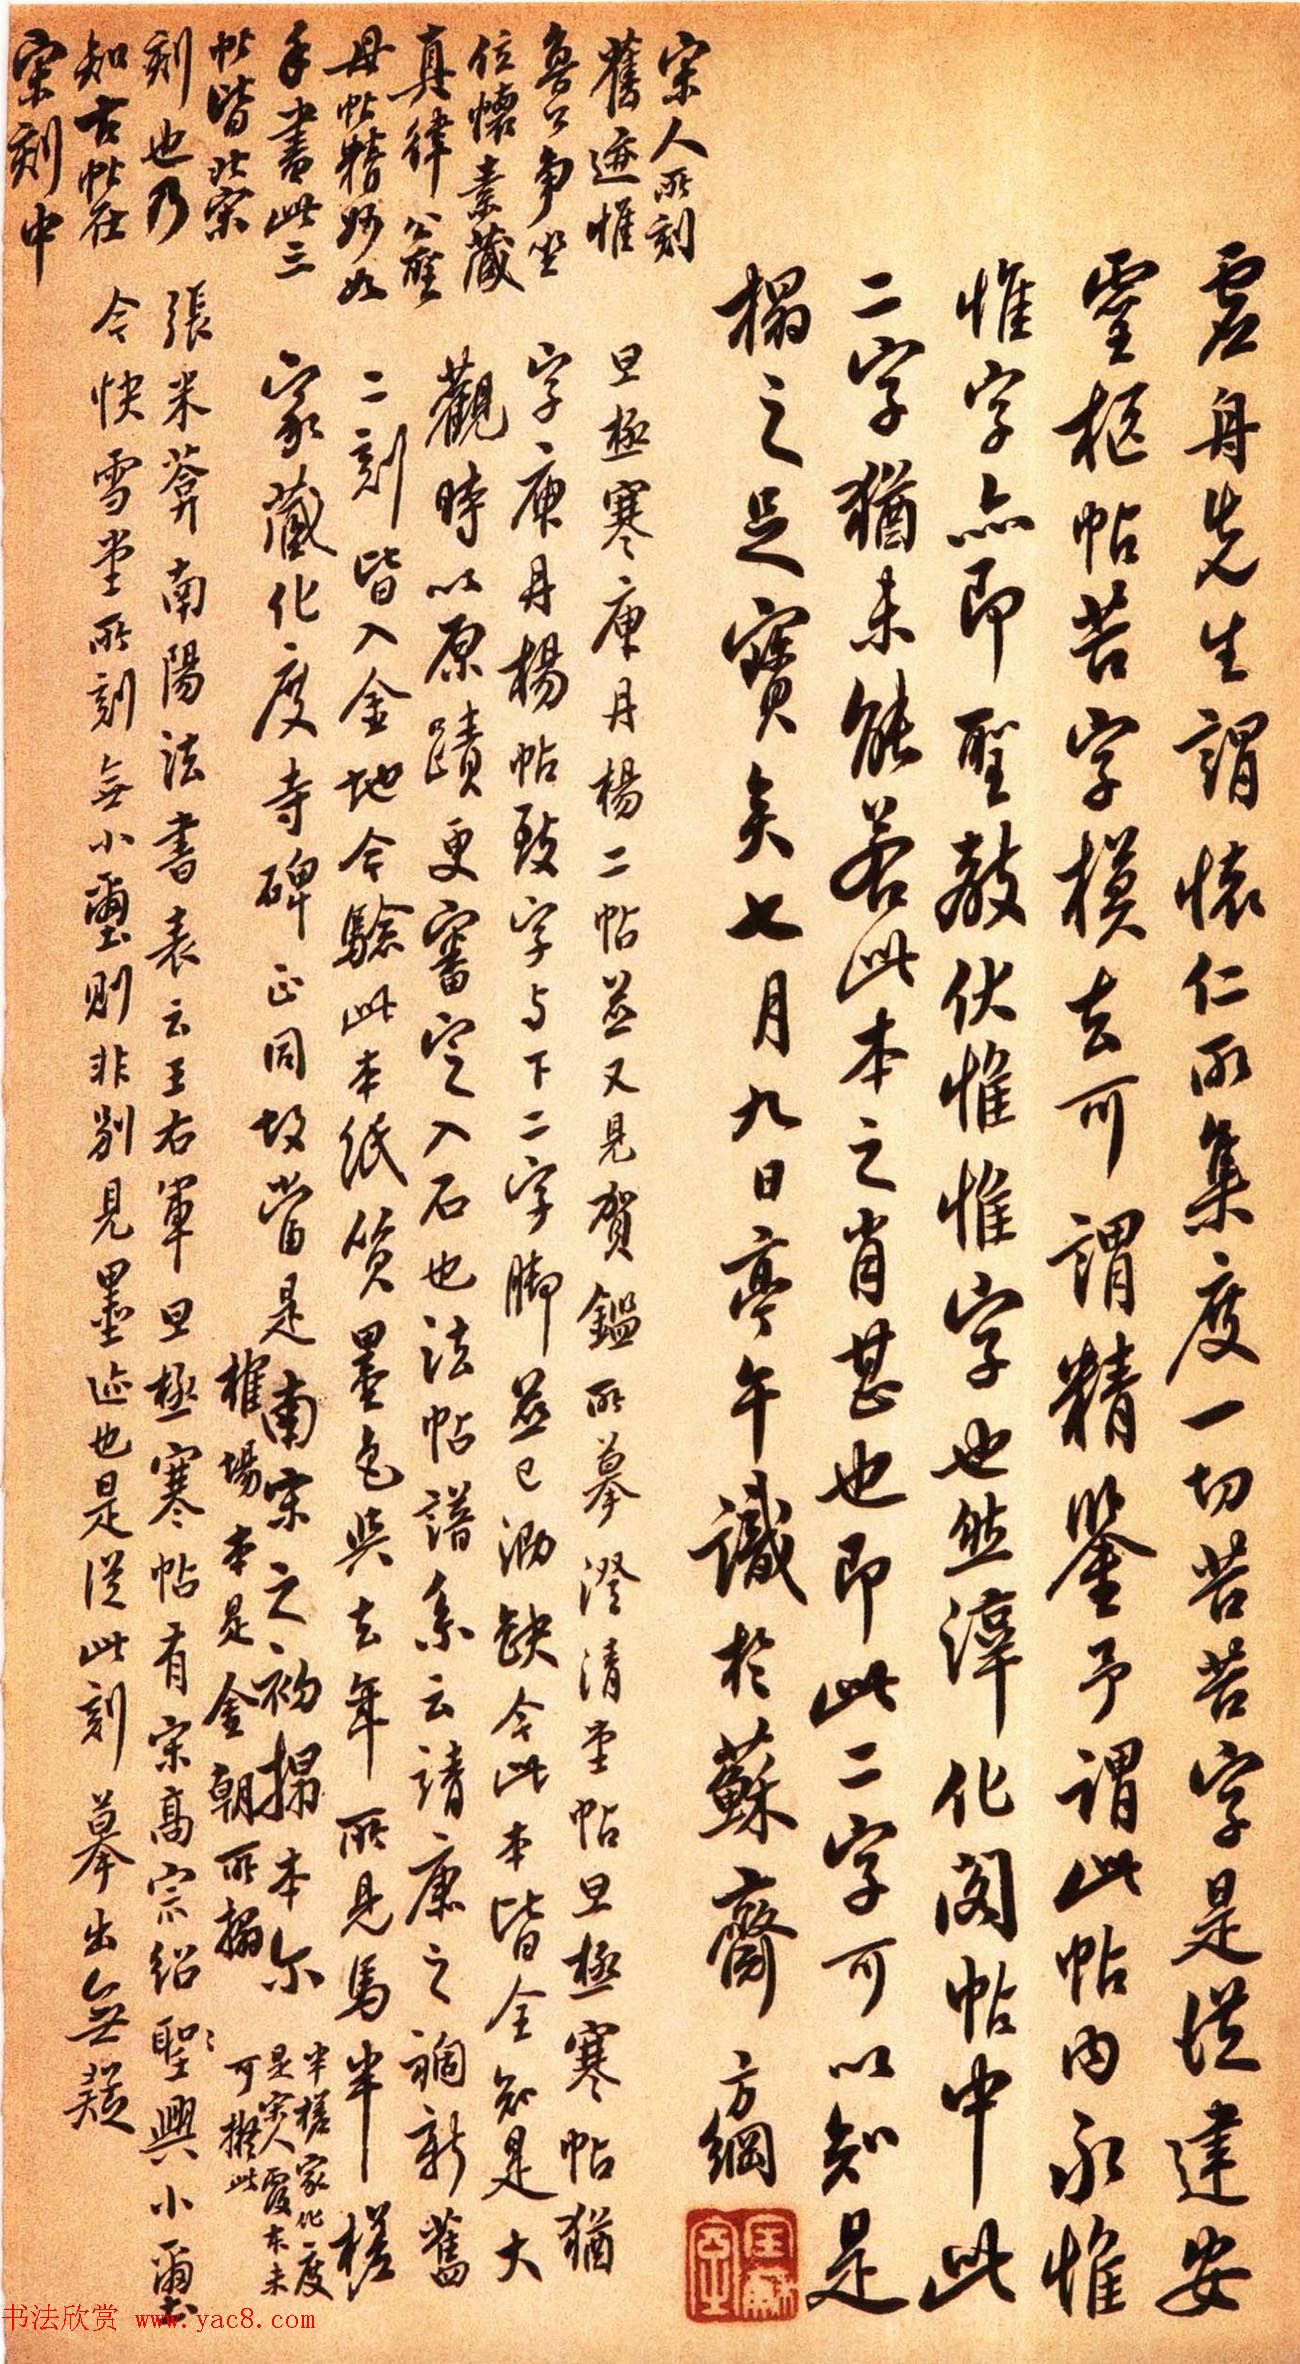 虛舟先生謂懷仁所集度一切苦苦字是從建安
靈柩帖苦字模去可謂精鑒予謂此帖內永惟
惟字亦即聖教伏惟惟字也然淳化閣帖中此
二字猶未能若此本之肖甚也即此二字可以知是
搨之足寶矣七月九日亭午識於蘇齋 方綱
宋人所刻
舊迹惟
魯公爭坐
位懷素藏
真律公聖
母帖精妙如
手書此三
帖皆北宋
刻也乃
知古帖在
宋刻中
旦極寒庚丹楊二帖並又見賀鑑所摹澄清堂帖旦極寒帖猶
字庚丹楊帖致字与下二字脚並已泐缺今此本皆全知是大
觀時以原蹟更審定入石也法帖譜系云靖康之禍新舊
二刻皆入金地今驗此本紙質墨色與去年所見馬半槎
家藏化度寺碑正同故當是南宋之初搨本尔
榷場本是金朝所搨
半槎家化度
是宋人覆本未
可擬此
張米菴南陽法書表云王右軍旦極寒帖有宋高宗紹興小璽
令快雪堂所刻無小璽則非别見墨迹也是從此刻摹出無疑
书法欣赏 www.yac8.com